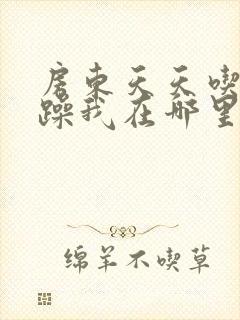 房东天天喫
躁我在哪里
绵羊不喫草